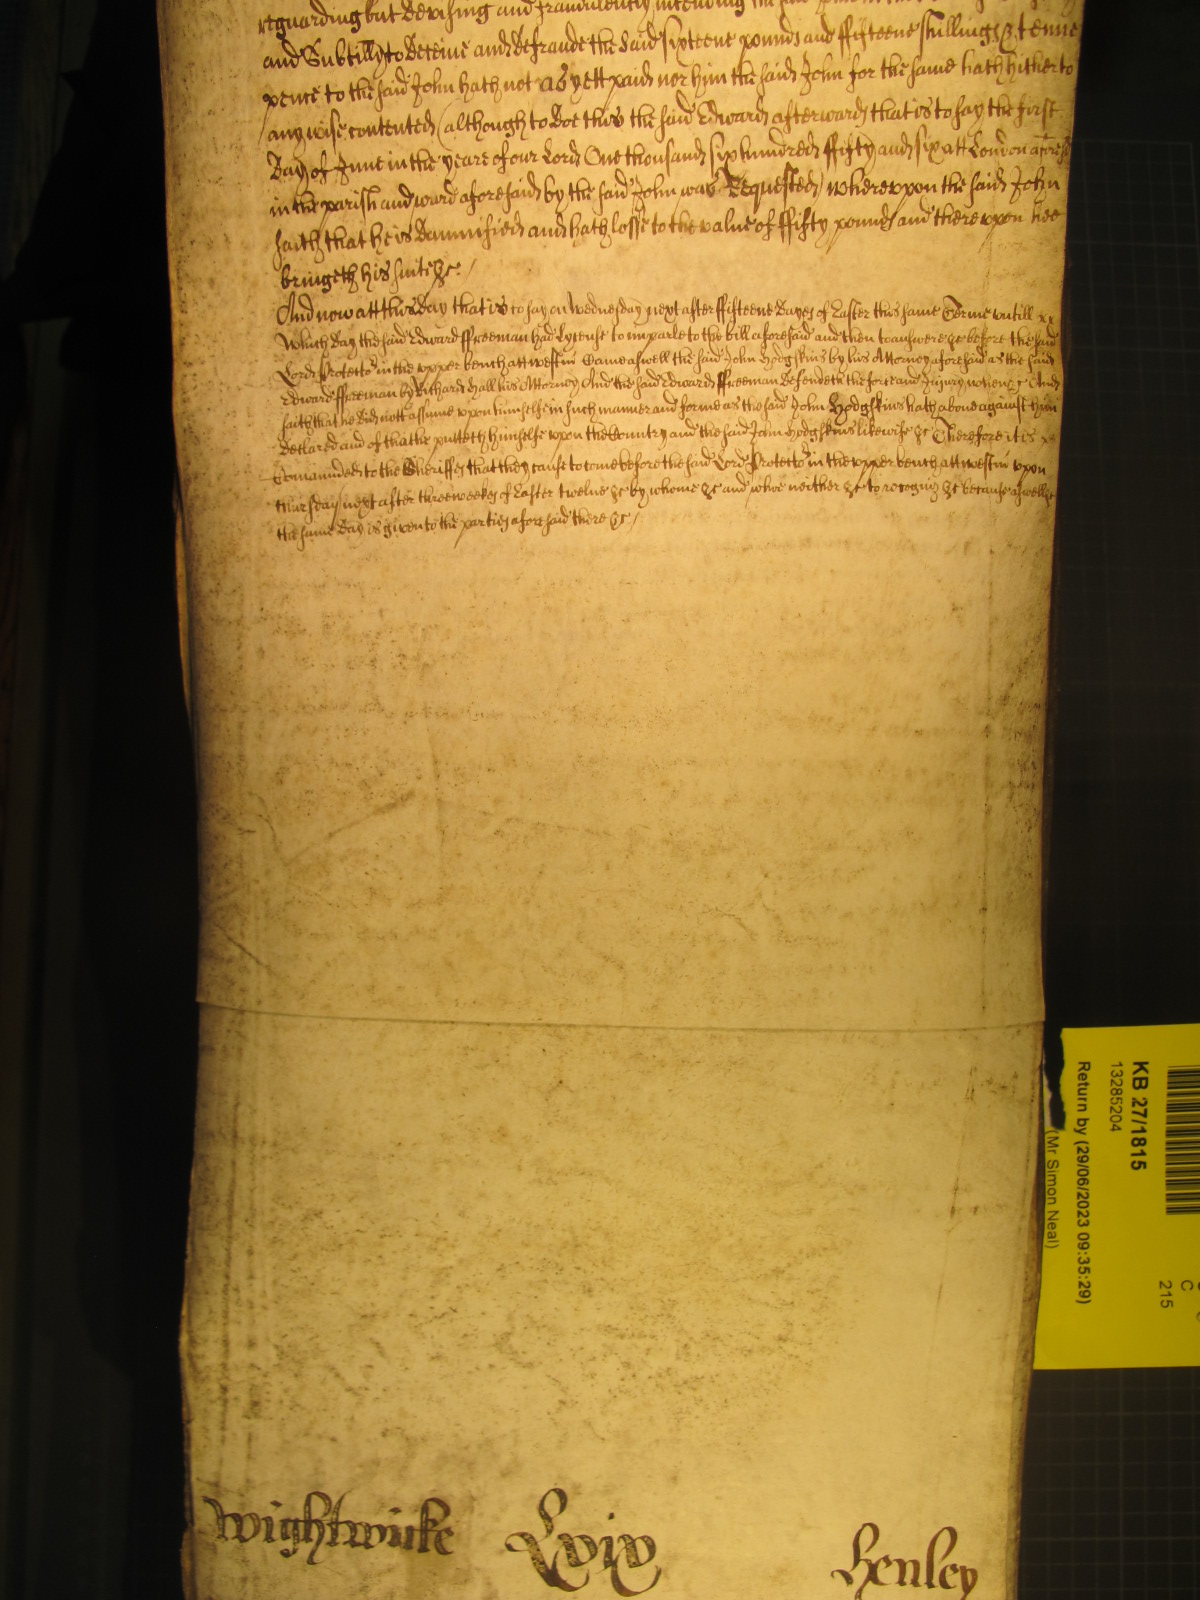 reguarding but devising and fraudulently intending the said
and Subtilly to deceive and defraude the said sixteene pounds and ffifteene shillings & tenne
pence to the said John hath not as yett paid nor him the said John for the same hath hitherto
any wise contented (although to doe this the said Edward afterward that is to say the first
day of June in the yeare of our Lord One thousand six hundred ffifty and six att London aforesd
in the parish and ward aforesaid by the said John was Requested) whereupon the said John
saith that he is damnified and hath losse to the value of ffifty pounds and thereupon hee
bringeth his suite &c /
And now att this day that is to say on Wednesday next after ffifteene dayes of Easter this same Terme untill
Which day the said Edward ffreeman had Lycense to imparle to the bill aforesaid and then to answere &c before the said
Lord Protector in the upper bench att westm Came aswell the said John Hodgskins by his Attorney aforesaid as the said
Edward ffreeman by Richard Hall his Attorney And the said Edward ffreeman defendeth the force and Injury when &c And
saith that he did nott assume upon himselfe in such manner and forme as the said John Hodgskins hath above against him
declared and of that he putteth himselfe upon the Country and the said John Hodgskins likewise &c Therefore it is
Comanded to the Sheriffes that they cause to come before the said Lord Protector in the upper bench att westm upon
thursday next after three weekes of Easter twelve &c by whome &c and whoe neither &c to recogniz &c because aswell &c
the same day is given to the parties aforesaid there &c /
Wightwicke
Lxix
Henley
KB 27/1815
13285204
Return by (29/06/2023 09:35:29)
(Mr Simon Neal)
C
215